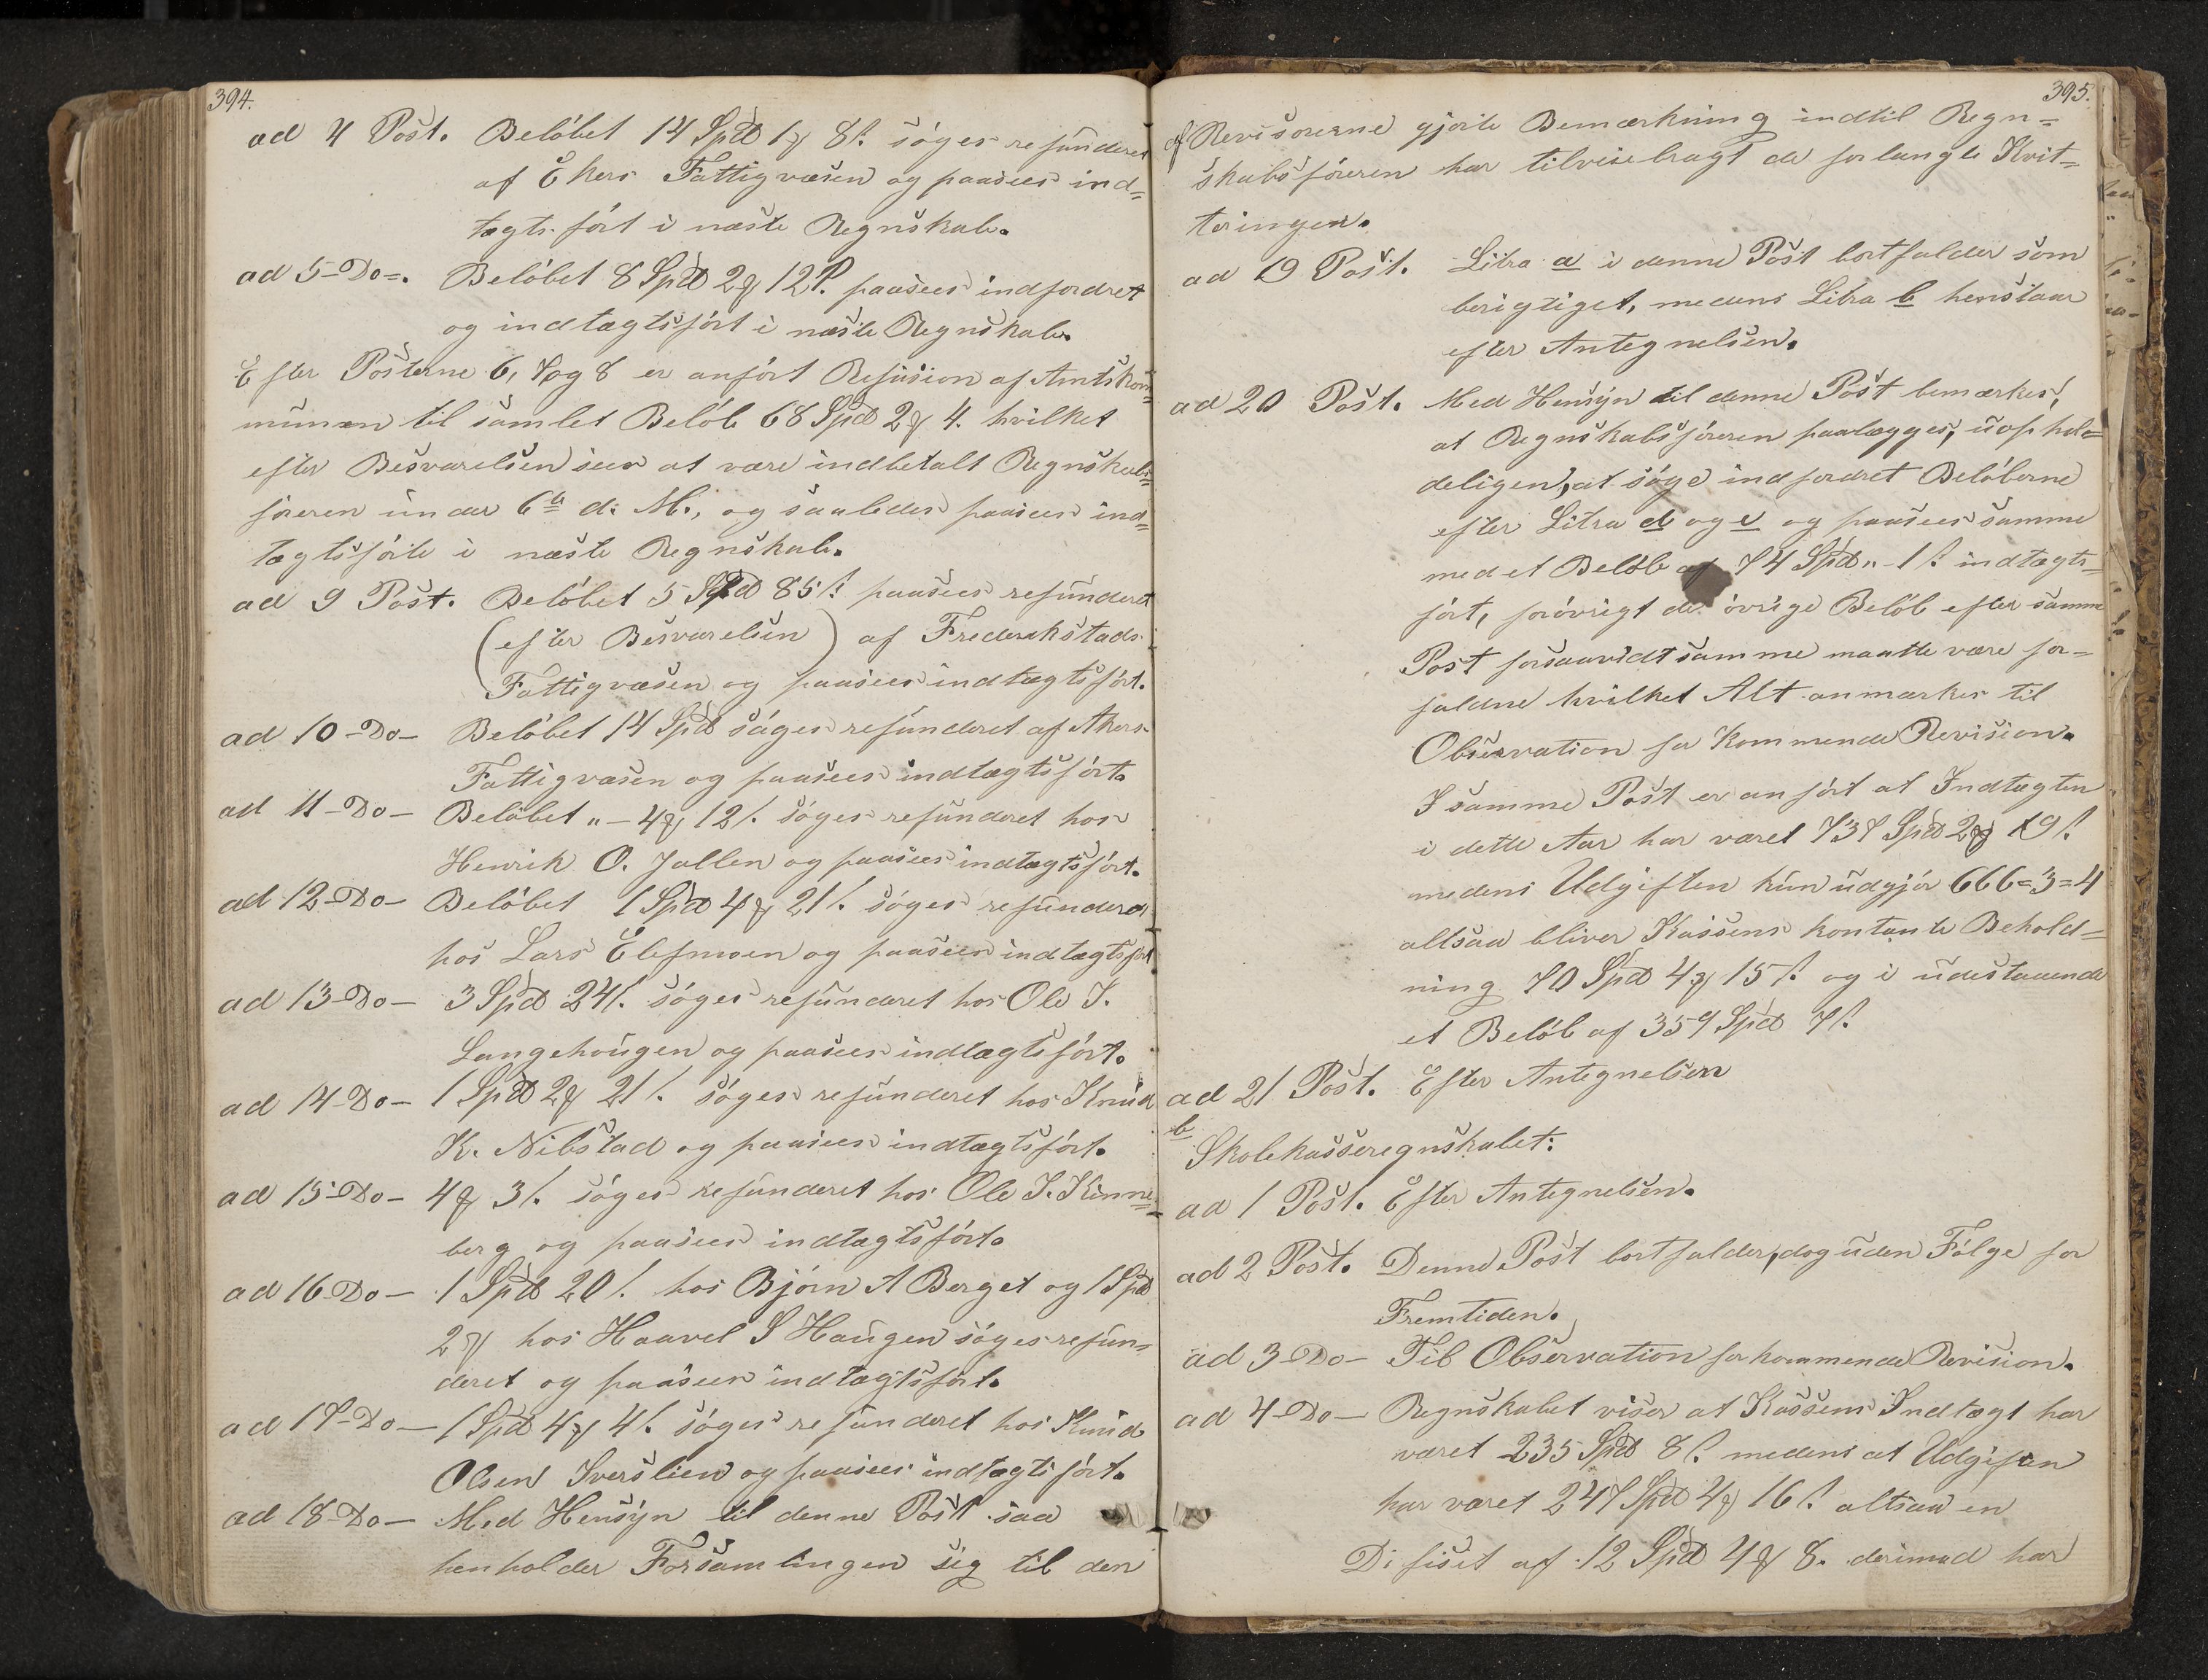 394.
ad 4 Post. Beløbet 14 Spd 1 ₰ 8 ß. søges refunderet
af Ekers Fattigvæsen og paasees ind=
tægts ført i næste Regnskab.
ad 5-Do=. Beløbet 8 Spd 2 ₰ 12 ß. paasees indfordret
og indtægtsført i næste Regnskab.
Efter Posterne 6, 7 og 8 er anført Refusion af Amtskom=
munen til samlet Beløb 68 Spd 2 ₰ 4. hvilket
efter Besvarelsen sees at være indbetalt Regnskabs=
føreren under 6te d: M:, og saaledes paasees ind=
tægtsførte i næste Regnskab.
ad 9 Post. Beløbet 5 Spd 85 ß paasees refunderet
(efter Besvarelsen) af Frederikstads
Fattigvæsen og paasees indtægtsført.
ad 10-Do- Beløbet 14 Spd søges refunderet af Akers
Fattigvæsen og paasees indtægtsført.
ad 11-Do- Beløbet „ - 4 ₰ 12 ß. søges refunderet hos
Henrik O. Jallen og paasees indtægtsført.
ad 12-Do- Beløbet 1 Spd 4 ₰ 21 ß. søges refunderet
hos Lars Elefmoen og paasees indtægtsført
ad 13-Do- 3 Spd 24 ß. søges refunderet hos Ole J.
Langehougen og paasees indtægtsført.
ad 14-Do- 1 Spd 2 ₰ 21 ß. søges refunderet hos Knud
K. Nibstad og paasees indtægtsført.
ad 15-Do- 4 ₰ 3 ß. søges refunderet hos Ole J. Kinne=
berg og paasees indtægtsført.
ad 16-Do- 1 Spd 20 ß. hos Bjørn A Berget og 1 Spd
2 ₰ hos Haavel S Haugen søges refun=
deret og paasees indtægtsført.
ad 17-Do- 1 Spd 4 ₰ 4 ß. søges refunderet hos Knud
Olsen Iverslien og paasees indtægtsført.
ad 18-Do- Med Hensyn til denne Post saa
henholder Forsamlingen sig til den
395.
af Revisorerne gjorte Bemærkning indtil Regn=
skabsføreren har tilveiebragt de forlangte Kvit=
teringer.
ad 19 Post. Litra a i denne Post bortfalder som
berigtiget, medens Litra b henstaar
efter Antegnelsen.
ad 20 Post. Med Hensyn til denne Post bemærkes,
at Regnskabsføreren paalægges, uophol=
deligen, at søge indfordret Beløberne
efter Litra d og e og paasees samme
med et Beløb af 74 Spd „ - 1 ß indtægts=
ført, forøvrigt de øvrige Beløb efter samme
Post forsaavidt samme maatte være for=
faldne hvilket Alt anmærkes til
Observation for kommende Revision.
I samme Post er anført at Indtægten
i dette Aar har været 737 Spd 2 ₰ 19 ß
medens Udgiften kun udgjør 666=3=4
altsaa bliver Kassens kontante Behold=
ning 70 Spd 4 ₰ 15 ß og i udestaaende
et Beløb af 359 Spd 7 ß
ad 21 Post. Efter Antegnelsen
b
Skolekasseregnskabet:
ad 1 Post. Efter Antegnelsen.
ad 2 Post. Denne Post bortfalder, dog uden Følge for
Fremtiden.
ad 3-Do- Til Observation for kommende Revision.
ad 4-Do- Regnskabet viser at Kassens Indtægt har
været 235 Spd 8 ß medens at Udgiften
har været 247 Spd 4 ₰ 16 ß altsaa en
Difisit af 12 Spd 4 ₰ 8. derimod har